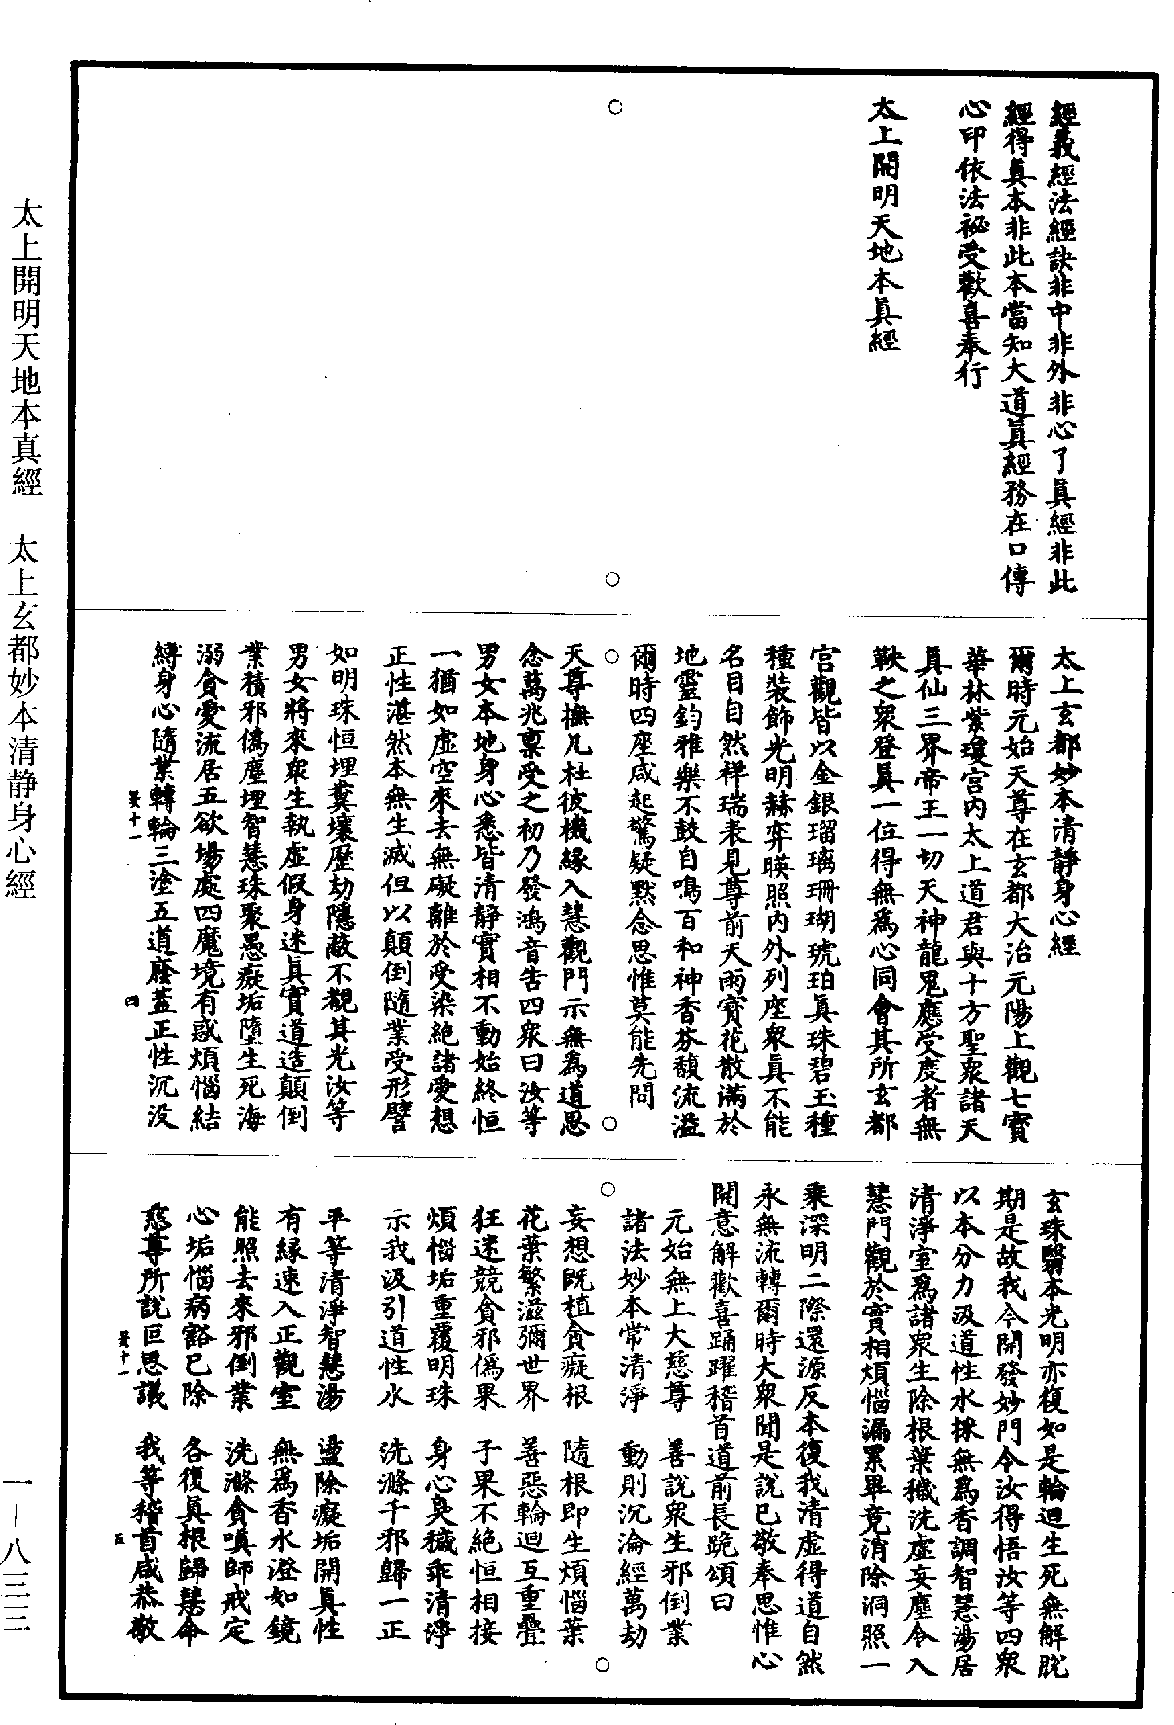 經義經法經訣非中非外非心了眞經非此
經得眞本非此本當知大道眞經務在口傳
心印依法祕受歡喜奉行
太上開明天地本眞經
太上玄都妙本清靜身心經
爾時元始天尊在玄都大治元陽上觀七寳
華林紫瓊宮內太上道君與十方聖衆諸天
真仙三界帝王一切天神龍鬼應受度者無
鞅之衆登眞一位得無爲心同會其所玄都
宮觀皆以金銀瑠璃珊瑚琥珀眞珠碧玉種
種裝飾光明赫弈暎照內外列座衆眞不能
名目自然祥瑞表見尊前天雨寳花散滿於
地靈鈞雅樂不鼓自鳴百和神香芬馥流溢
爾時四座咸起驚疑默念思惟莫能先問
天尊撫几杜彼機緣入慧觀門示無爲道思
念萬兆稟受之初乃發鴻音告四衆曰汝等
男女本地身心悉皆清靜實相不動始終恒
一猶如虛空來去無礙離於受染絕諸愛想
正性湛然本無生滅但以顛倒隨業受形譬
如明珠恒埋糞壤歷劫隱蔽不覩其光汝等
男女將來衆生執虛假身迷眞實道造顛倒
業積邪僞塵埋智慧珠聚愚癡垢墮生死海
溺貪愛流居五欲場處四魔境有惑煩惱結
縛身心隨業轉輪三塗五道廕蓋正性沉没
玄珠翳本光明亦復如是輪迴生死無解脫
期是故我今開發妙門令汝得悟汝等四衆
以本分力汲道性水採無爲香調智慧湯居
清淨室爲諸衆生除根葉穢洗虛妄塵令入
慧門觀於實相煩惱漏累畢竟消除洞照一
乘深明二際還源反本復我清虛得道自然
永無流轉爾時大衆聞是說已敬奉思惟心
開意解歡喜踊躍稽首道前長跪頌曰
元始無上大慈尊　善說衆生邪倒業
諸法妙本常清淨　動則沉淪經萬劫
妄想旣植貪癡根　隨根即生煩惱葉
花葉繁滋彌世界　善惡輪迴互重疊
狂迷競貪邪僞果　子果不絕恒相接
煩惱垢重覆明珠　身心臭穢乖清淨
示我汲引道性水　洗滌千邪歸一正
平等清淨智慧湯　盪除癡垢開眞性
有緣速入正觀室　無爲香水澄如鏡
能照去來邪倒業　洗滌貪嗔師戒定
心垢惱病豁已除　各復眞根歸慧命
慈尊所說叵思議　我等稽首咸恭敬
太上開明天地本真經　太上玄都妙本清静身心經
一—八三三